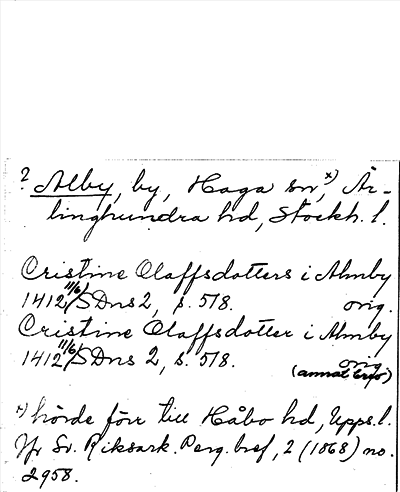 ? Alby, by, Haga sn,x) Är-
linghundra hd, Stockh. l.
Cristine Olaffsdotters i Almby
1412 11/6 SDns 2, s. 518. orig.
Cristine Olaffsdotter i Almby
1412 11/6 SDns 2, s. 518. orig.
(annat brev)
x) hörde förr till Håbo hd, Upps. l.
Jfr Sv. Riksark. Perg. bref, 2 (1868) no.
2958.